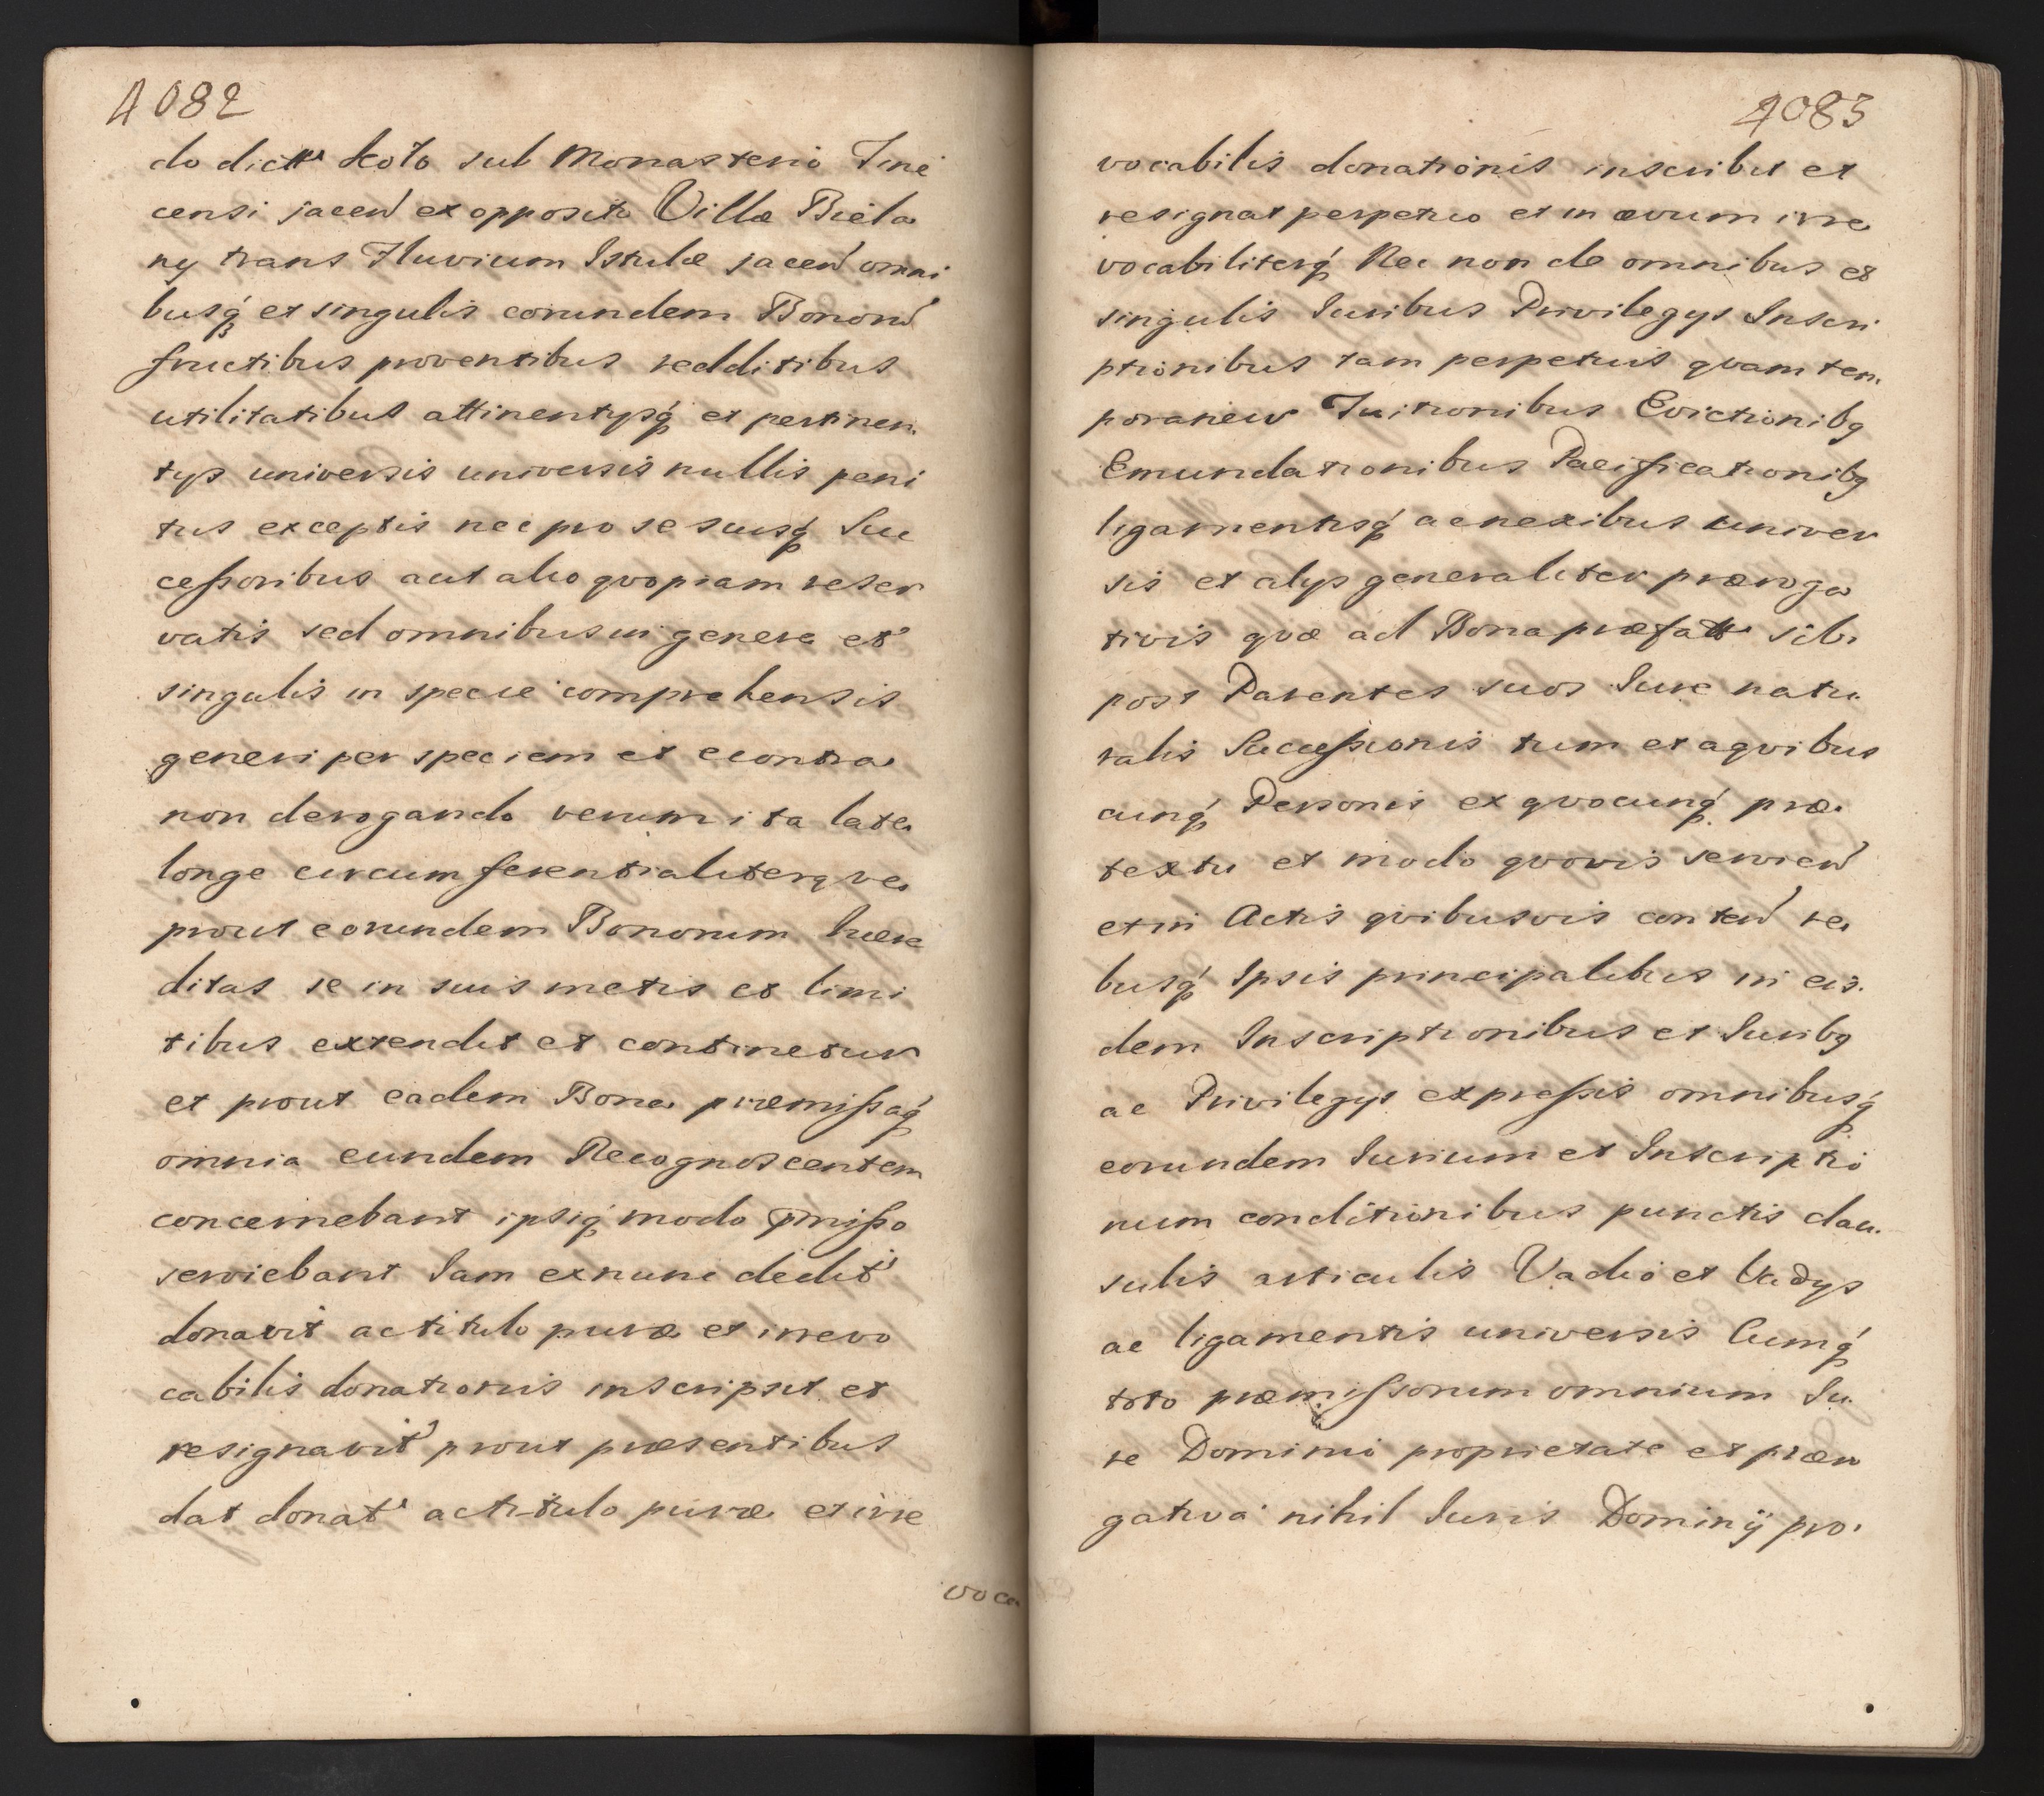 4082
do dictt Koło sub Monasterio Tine
censi jacen ex opposito Villæ Biela
ny trans Fluvium Istulæ jacen omni
busq́ et singulis eorundem Bonorū
fructibus proventibus redditibus
utilitatibus attinentysq́ et pertinen
tys universis universis nullis peni
tus exceptis nec pro se suisq́ Suc
cessoribus aut alio qvopiam reser
vatis sed omnibus in genere et
singulis in specie comprehensis
generi per speciem et econtra
non derogando verum ita late
longe circumferentialiterqve
prout eorundem Bonorum hære
ditas se in suis metis et limi
tibus extendit et continetur
et prout eadem Bona præmissaq́
omnia eundem Recognoscentem
concernebant ipsiq́ modo pmisso
serviebant Iam exnunc dedit
donavit ac titulo puræ et irrevo
cabilis donationis inscripsit et
resignavit prout præsentibus
dat donat ac titulo puræ et irre
voca
4083
vocabilis donationis inscribit et
resignat perpetuo et in ævum irre
vocabiliterq́ Nec non de omnibus et
singulis Iuribus Privilegys Inscri
ptionibus tam perpetuis qvam tem
poraneis Tuitionibus Evictionibq
Emundationibus Pacificationibq
ligamentisq́ ac nexibus univer
sis et alys generaliter præroga
tivis qvæ ad Bona præfatt sibi
post Parentes suos Iure natu
ralis Successionis tum et a qvibus
cunq́ Personis ex qvocunq́ præ
textu et modo qvovis servien
et in Actis qvibusvis conten re
busq́ Ipsis principalibus in eis
dem Inscriptionibus et Iuribq
ac Privilegys expressis omnibusq́
eorundem Iurium et Inscriptio
num conditionibus punctis clau
sulis articulis Vadio et Vadys
ac ligamentis universis Cumq́
toto præmissorum omnium Iu
re Dominio proprietate et præro
gativa nihil Iuris Dominÿ pro